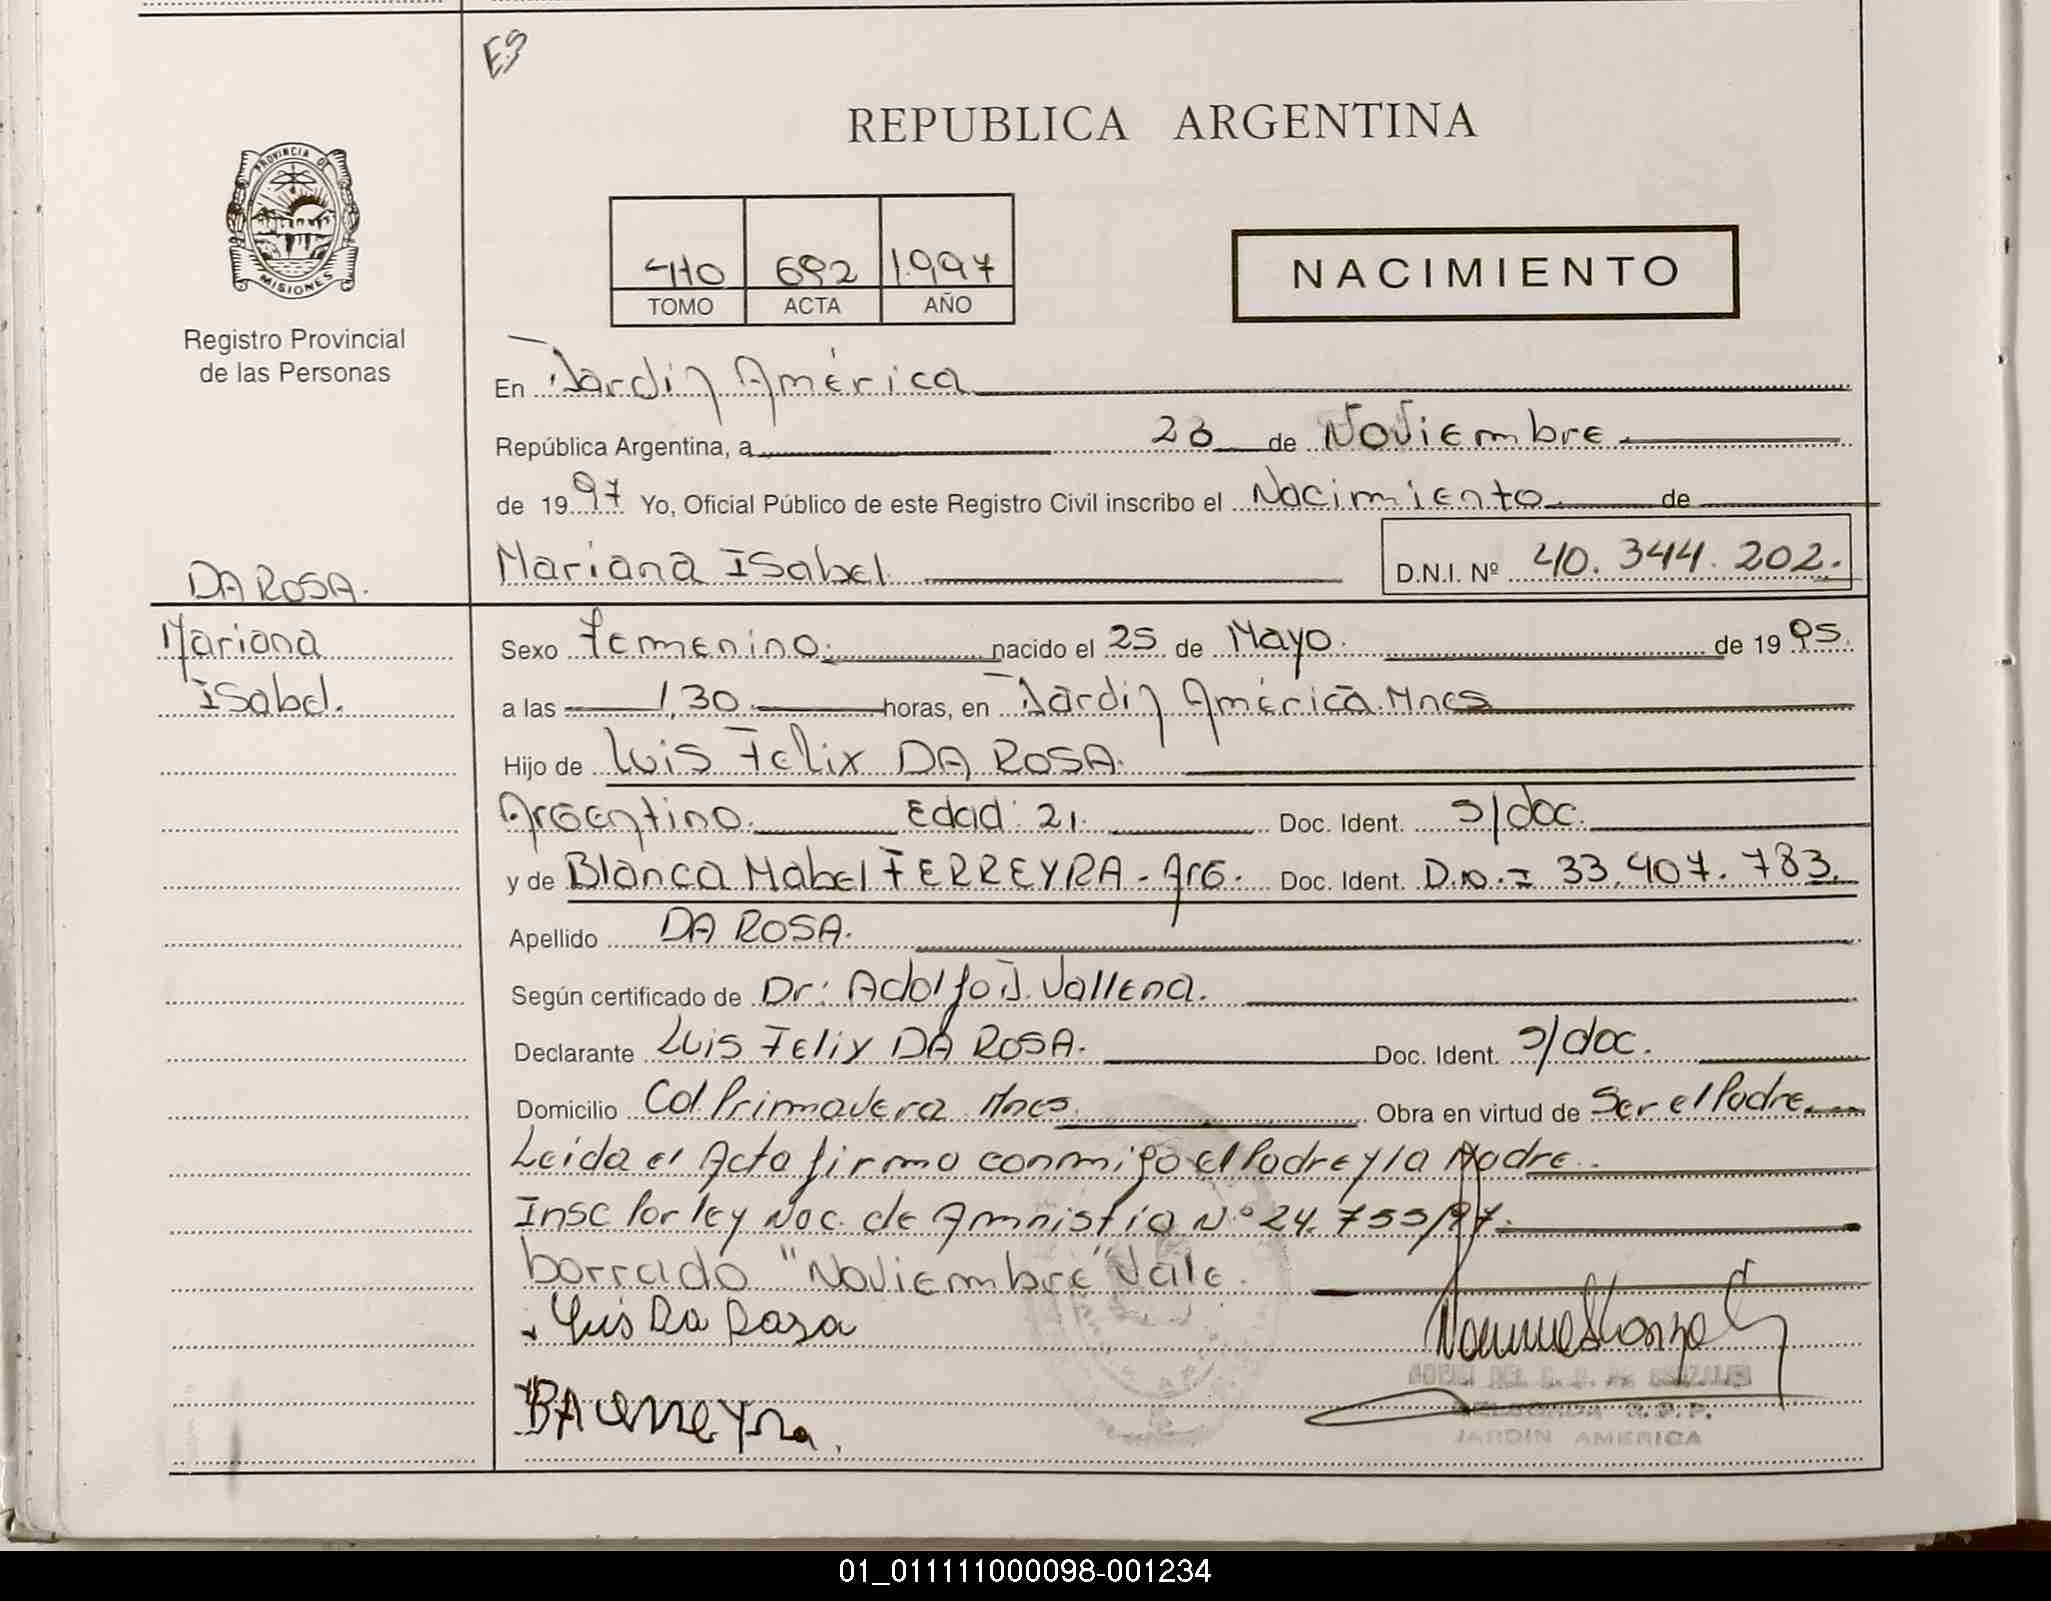 E3
REPUBLICA ARGENTINA
PROVINCIA DE
MISIONES
Registro Provincial
de las Personas
4110 692 1.997
TOMO ACTA AÑO
NACIMIENTO
En Jardin América
República Argentina, a 28 de Noviembre
de 1997 Yo, Oficial Público de este Registro Civil inscribo el Nacimiento de
Mariana Isabel D.N.I. Nº 40.344.202.
DA ROSA.
Mariana
Isabel.
Sexo Femenino. nacido el 25 de Mayo. de 1995.
a las 1,30 horas, en Jardin América. Mnes
Hijo de Luis Felix DA ROSA.
Argentino. Edad: 21. Doc. Ident. s/doc.
y de Blanca Mabel FERREYRA - Arg. Doc. Ident. 33.407.783.
Apellido DA ROSA.
Según certificado de Dr: Adolfo J. Vallena.
Declarante Luis Felix DA ROSA. Doc. Ident. s/doc.
Domicilio Col Primavera Mnes. Obra en virtud de Ser el Padre.
Leida el Acta firma conmigo el Padre y la Madre.
Insc Por ley Nac. de Amnistia Nº 24.755/97.
borrado "Noviembre" Vale.
Luis Da Rosa
JARDIN AMERICA
01_011111000098-001234